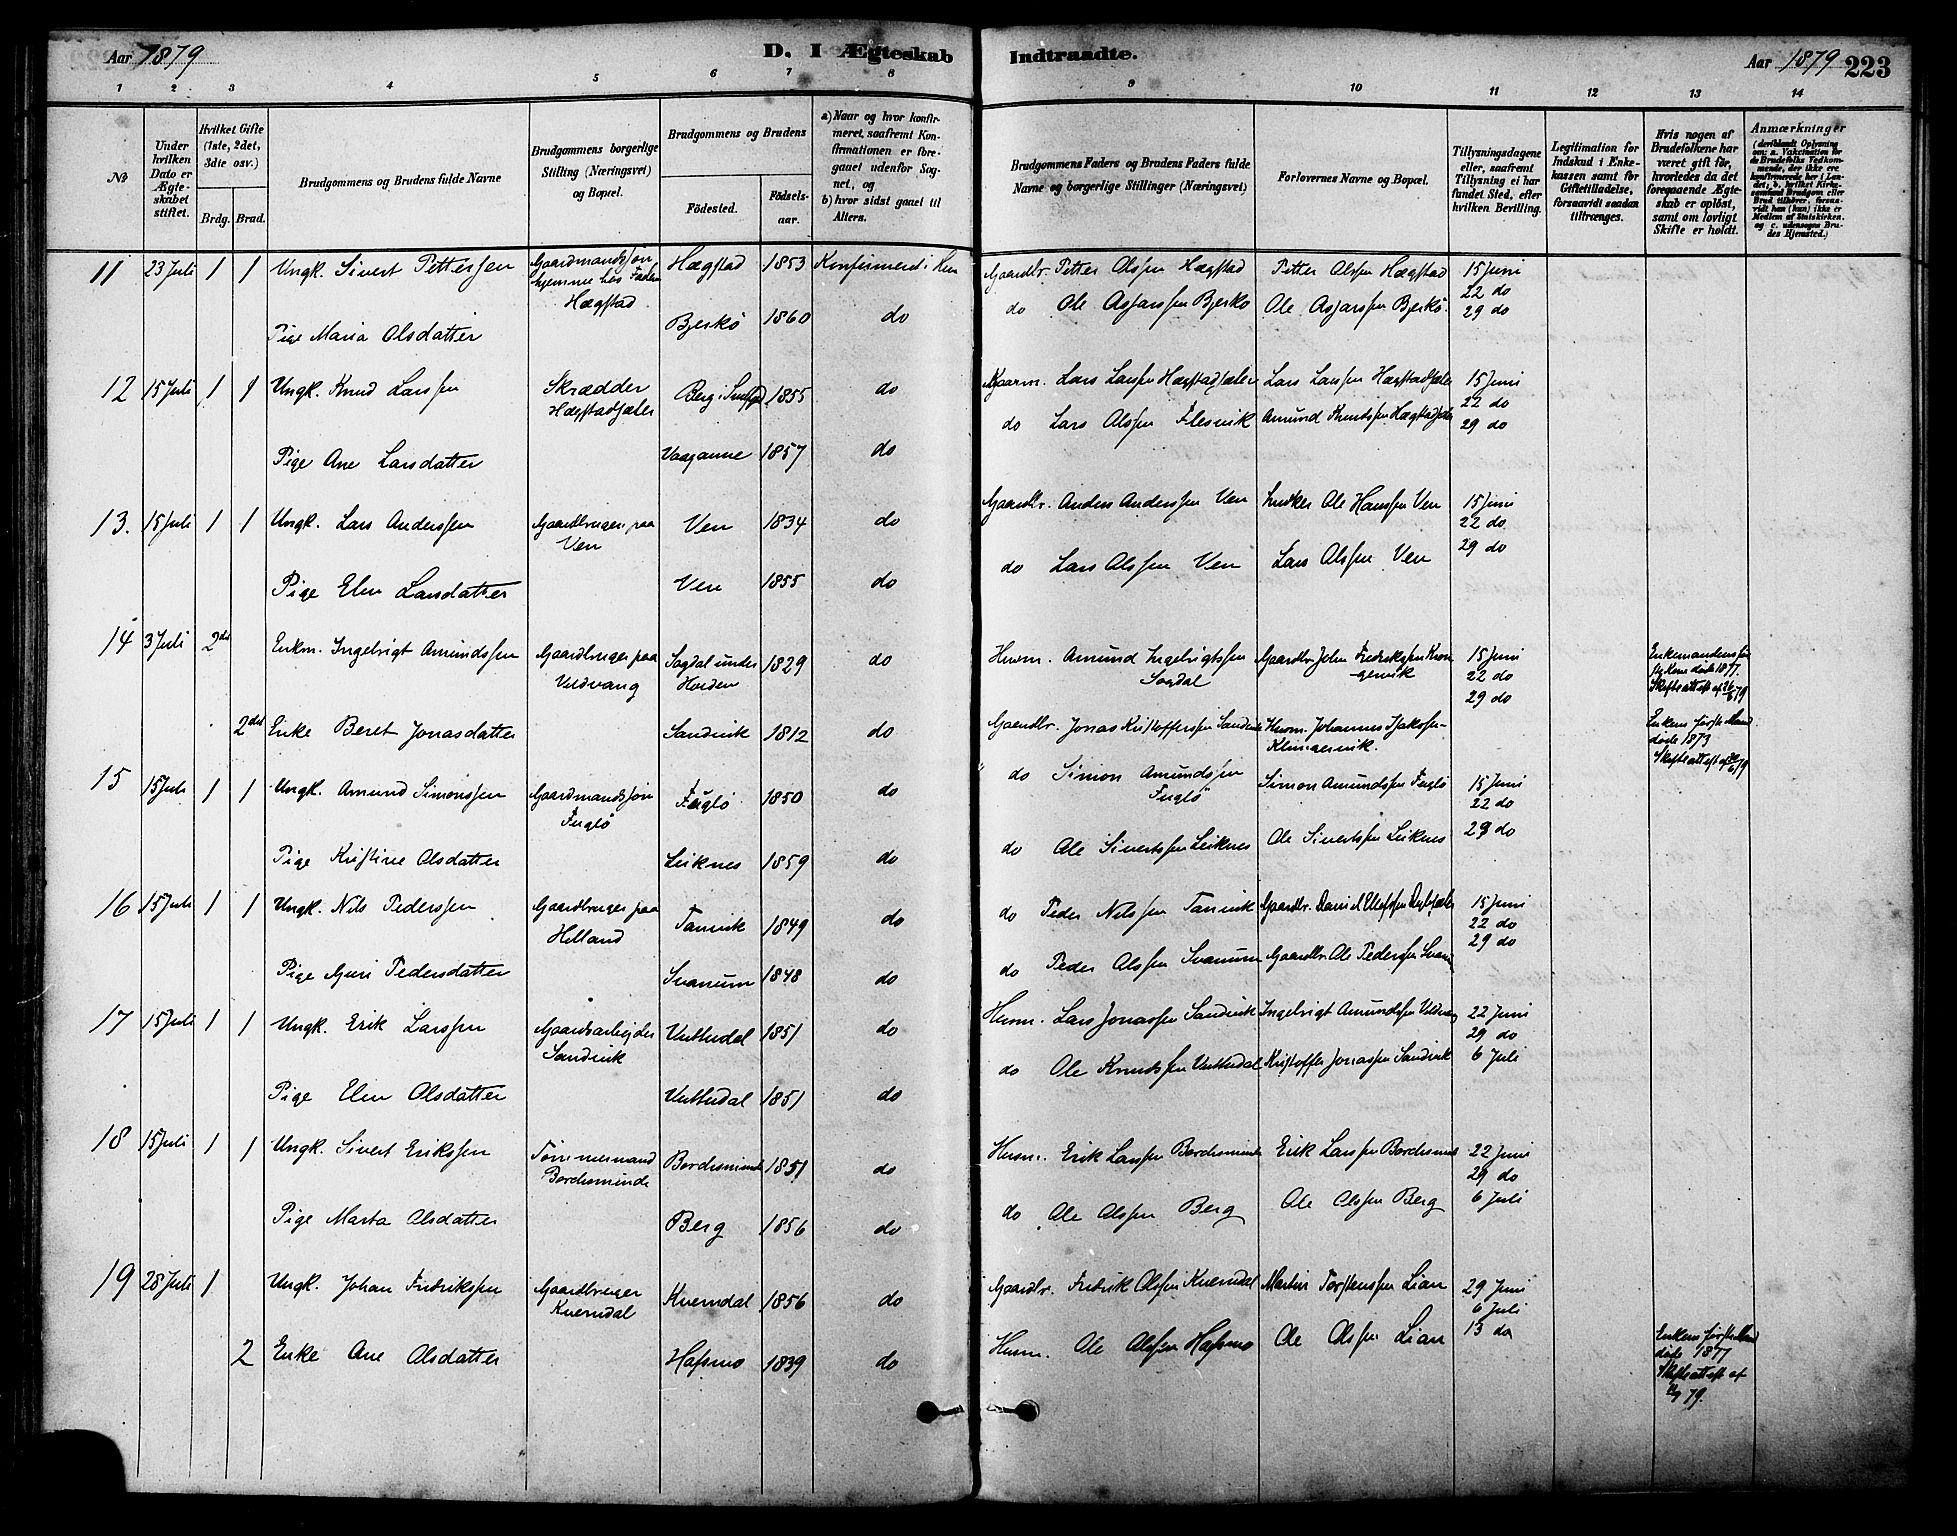 Aar 1879
D. I Ægteskab
Indtraadte.
Aar 1879
223
1 2 3 4 5 6 7 8 9 10 11 12 13 14
No
Under hvilken Dato er Ægteskabet stiftet.
Hvilket Gifte (1ste, 2det, 3die osv.)
Brdg. Brud.
Brudgommens og Brudens fulde Navne
Brudgommens borgerlige Stilling (Næringsvei) og Bopæl.
Brudgommens og Brudens
Födested.
Födselsaar.
a) Naar og hvor konfirmeret, saafremt Konfirmationen er foregaaet udenfor Sognet, og
b) hvor sidst gaaet til Alters.
Brudgommens Faders og Brudens Faders fulde Navne og borgerlige Stillinger (Næringsvei)
Forlovernes Navne og Bopæl.
Tillysningsdagene eller, saafremt Tillysning ei har fundet Sted, efter hvilken Bevilling.
Legitimation for Indskud i Enkekassen samt for Giftetilladelse, forsaavidt saadan tiltrænges.
Hvis nogen af Brudefolkene har været gift för, hvorledes da det foregaaende Ægteskab er oplöst, samt om lovligt Skifte er holdt.
Anmærkninger (deriblandt Oplysning om: a. Vakcination for de Brudefolks Vedkommende, der ikke ere konfirmerede her i Landet, b. hvilket Kirkesamfund Brudgom eller Brud tilhörer, forsaavidt han (hun) ikke er Medlem af Statskirken, og c. udensogns Brudes Hjemsted.)
11 23 Juli 1 1 Ungk. Sivert Pettersen Gaardmandssøn hjemme hos Faderen Hægstad Hægstad 1853 Konfirmeret i Gaardbr. Petter Olssen Hægstad Petter Olssen Hægstad 15 Juni
22 do
Pige Maria Olsdatter Bjerkö 1860 do do Ole Asjarssen Bjerkö Ole Asjarssen Bjerkö. 29 do
12 15 Juli 1 1 Ungk. Knud Larssen Skrædder Hægstadsæter Berg i 1855 do Gaarm. Lars Larssen Hægstadsæter Lars Larssen Hægstadsæter 15 Juni
22 do
Pige Ane Larsdatter Vaaganne 1857 do do Lars Olssen Flesvik Amund Knudssen Hægstadsæter 29 do
13. 15 Juli 1 1 Ungk. Lars Anderssen Gaardbruger paa Ven Ven 1834 do Gaardbr. Anders Anderssen Ven Ole Hanssen Ven 15 Juni
22 do
Pige Elen Larsdatter Ven 1855 do do Lars Olssen Ven Lars Olssen Ven 29 do
14 3 Juli 2de Enkm. Ingebrigt Amundssen Gaardbruger paa Veldvang Sogdal under Horden 1829 do Husm. Amund Ingebrigtssen Sogdal Gaardbr. John Fredrikssen 15 Juni
22 do
29 do
Enkemandens Kone døde 1877. Skifteattest af 26/6 79
2det Enke Beret Jonasdatter Sandvik 1812 do Gaardbr. Jonas Kristofferssen Sandvik Husm. Johannes Klingervik. Enkens første Mand døde 1873 Skifteattest af
15 15 Juli 1 1 Ungk. Amund Simonssen Gaardmandssøn Fuglö Fuglö 1850 do do Simon Amundssen Fuglö Simon Amundssen Fuglö 15 Juni
22 do
Pige Kristine Olsdatter Leiknes 1859 do do Ole Sivertssen Leiknes Ole Sivertssen Leiknes 29 do
16 15 Juli 1 1 Ungk. Nils Pederssen Gaardbruger paa Helland Tannvik 1849 do do Peder Nilssen Tannvik Gaardbr. Daniel 15 Juni
22 do
Pige Guri Pedersdatter Svanum 1848 do do Peder Olssen Svanum Gaardbr. Ole Pederssen Svanum 29 do
17 15 Juli 1 1 Ungk. Erik Larssen Gaardsarbejder Sandvik Vuttudal 1851 do Husm. Lars Jonassen Sandvik Ingebrigt Amundssen Veldvang 22 Juni
29 do
Pige Elen Olsdatter Vuttudal 1851 do do Ole Knudssen Vuttudal Kristoffer Jonassen Sandvik 6 Juli
18 15 Juli 1 1 Ungk. Sivert Erikssen Tømmermand Bordisminde Bordisminde 1851 do Husm. Erik Larssen Bordisminde Erik Larssen Bordisminde 22 Juni
29 do
Pige Marta Olsdatter Berg 1856 do do Ole Olssen Berg Ole Olssen Berg 6 Juli
19 28 Juli 1 Ungk. Johan Fredrikssen Gaardbruger Kverndal Kverndal 1856 do Gaardbr. Fredrik Olssen Kverndal Martin Torstenssen Lian 29 Juni
6 Juli
2 Enke Ane Olsdatter Hafsmo 1839 do Husm. Ole Olssen Hafsmo Ole Olssen Lian 13 do Enkens første Mand døde 1877 Skifteattest af 79.